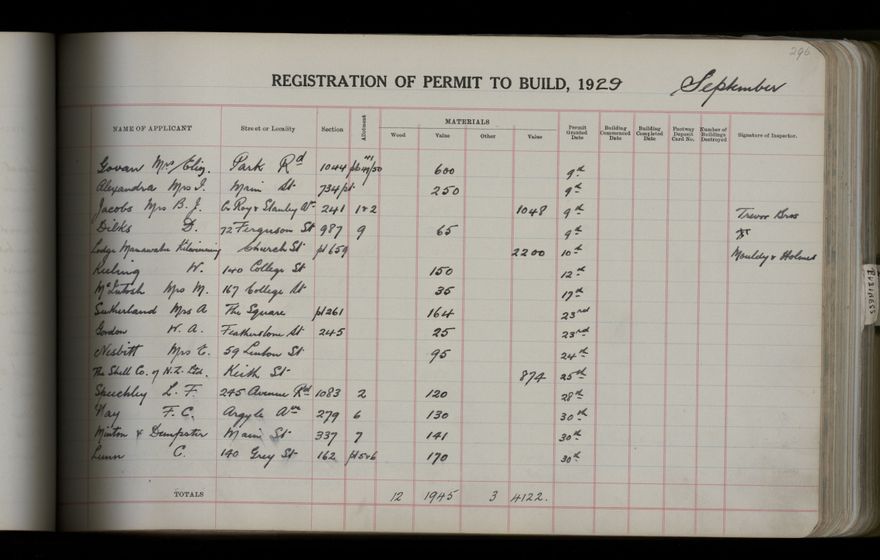 296
REGISTRATION OF PERMIT TO BUILD, 1929 September
NAME OF APPLICANT Street or Locality Section Allotment MATERIALS Wood Value Other Value Permit Granted Date Building Commenced Date Building Completed Date Footway Deposit Card No. Number of Buildings Destroyed Signature of Inspector.
Govan Mrs Eliz. Park Rd 1044 600 9th
Alexandra Mrs I. Main St 734 pt 250 9th
Jacobs Mrs B. J. Cr Roy & Stanley Av. 241 1&2 1048 9th Trevor Bros
Dilks D. 72 Ferguson St 987 9 65 9th
Lodge Manawatu Kilwinning Church St pt 659 2200 10th Mouldy & Holmes
Keeling W. 140 College St 150 12th
McIntosh Mrs M. 167 College St 35 17th
Sutherland Mrs A The Square pt 261 164 23rd
Gordon W. A. Featherston St 245 25 23rd
Nesbitt Mrs E. 59 Linton St 95 24th
The Shell Co. of N.Z. Ltd. Keith St 874 25th
Speechley L. F. 245 Avenue Rd 1083 2 120 28th
Way F. C. Argyle Ave 279 6 130 30th
Minton & Dempster Main St 337 7 141 30th
Lunn C. 190 Grey St 162 pt 5&6 170 30th
TOTALS 12 1945 3 4122.
BUSINESS